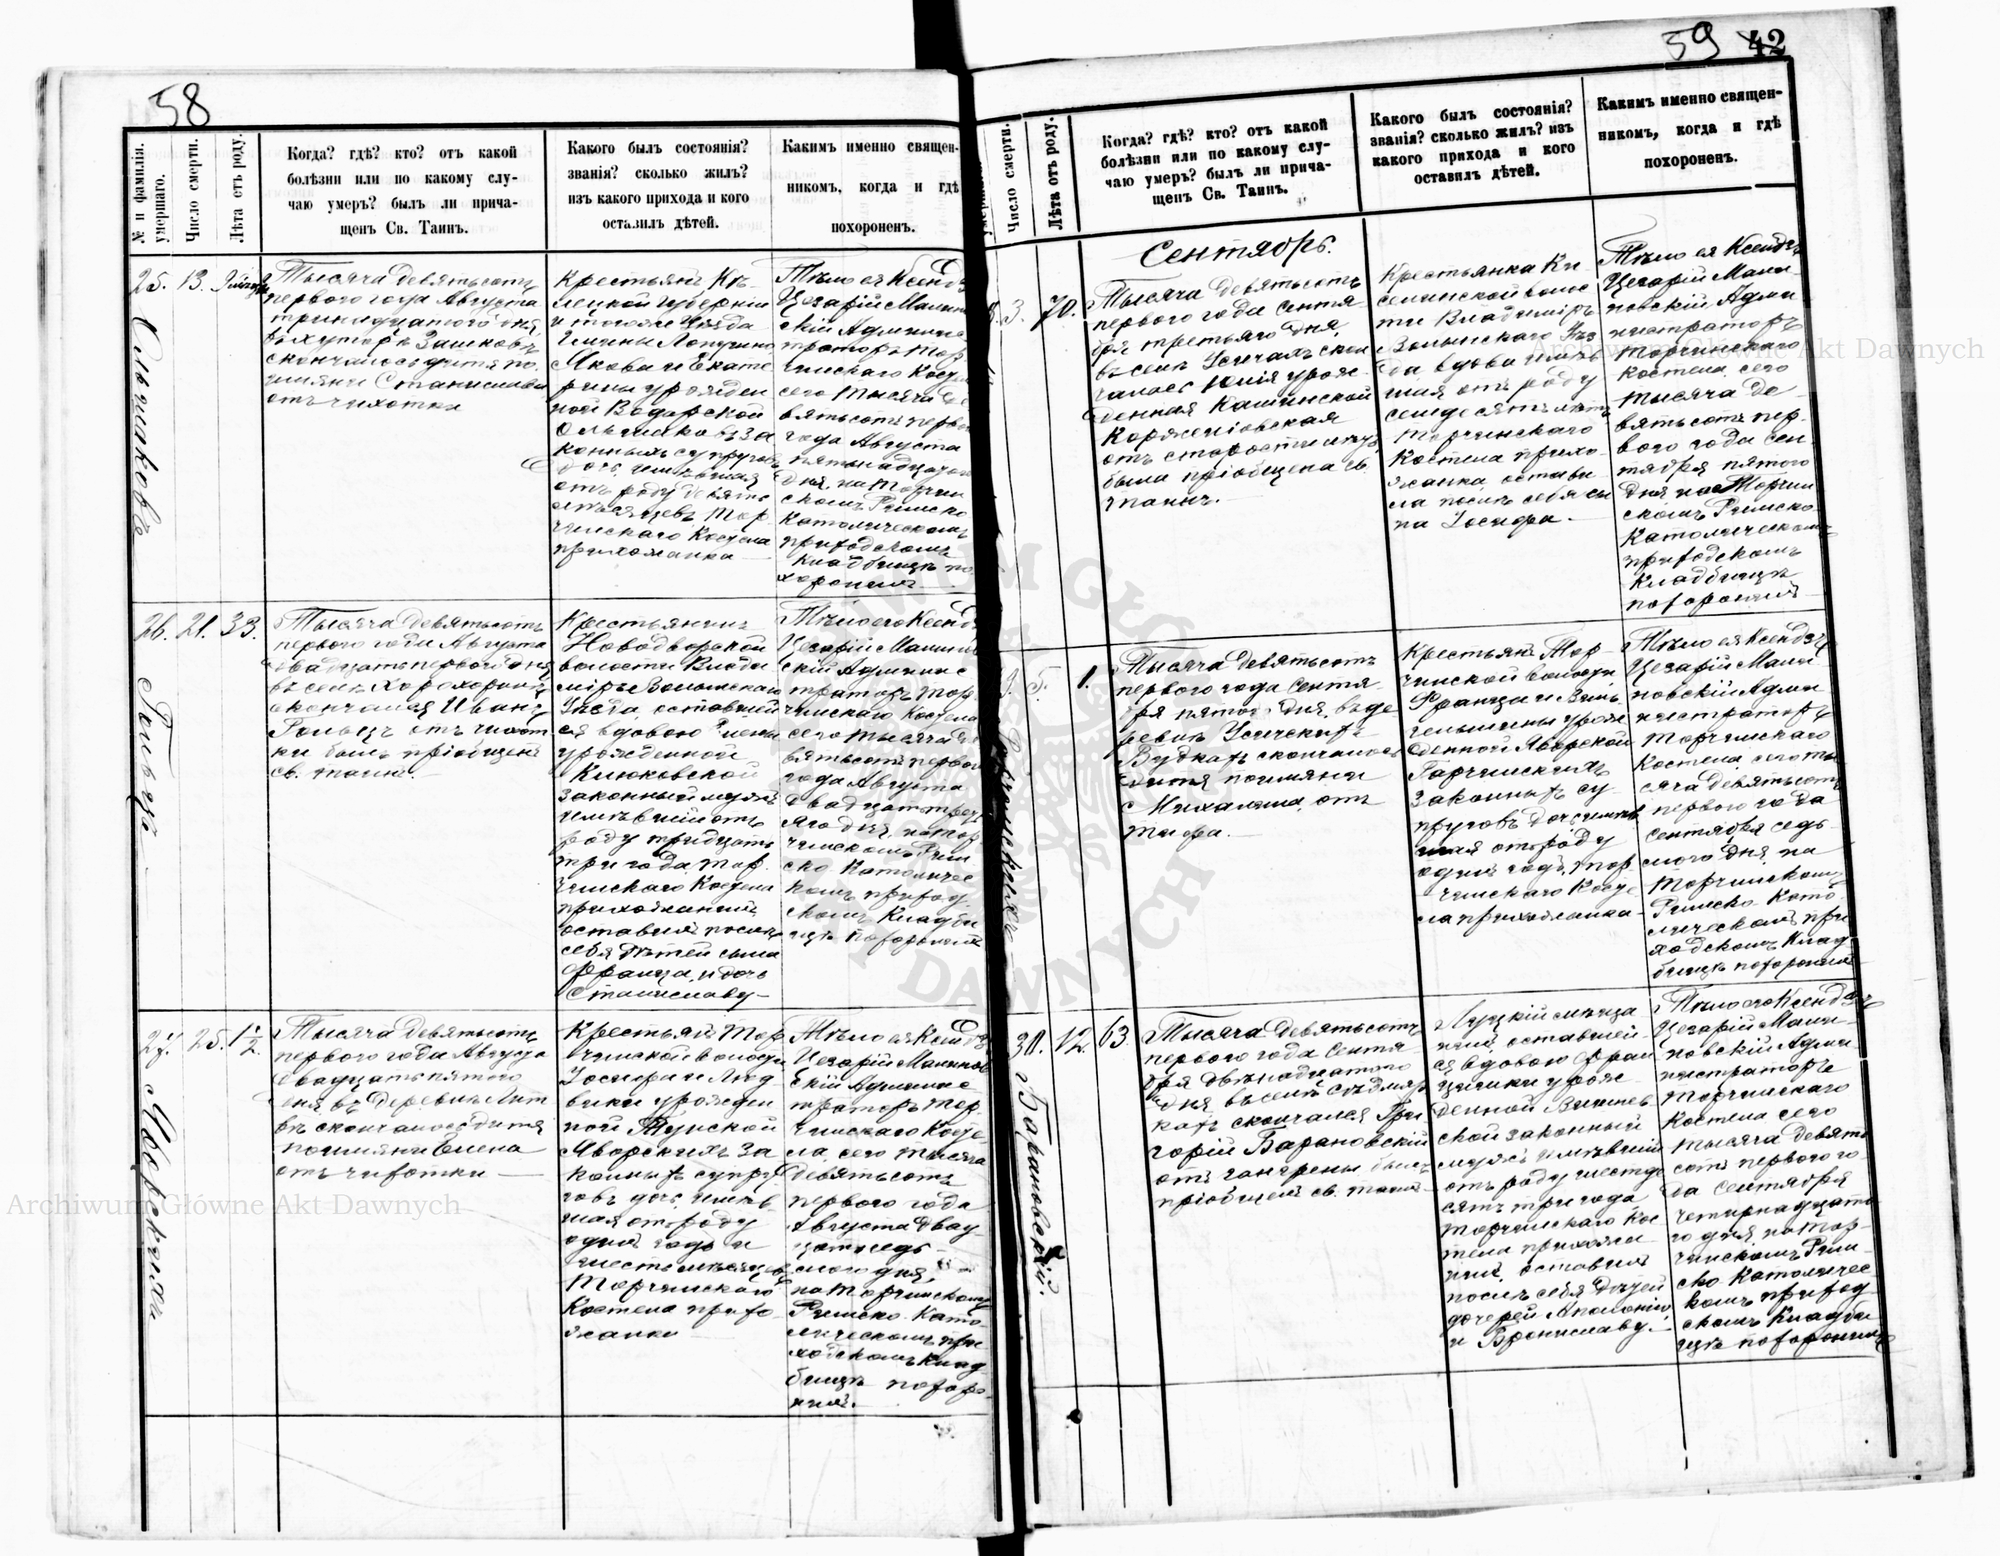 58
№ и фамилія.
умершаго.
Число смерти.
Лѣта отъ роду.
Когда? гдѣ? кто? отъ какой
болѣзни или по какому слу-
чаю умеръ? былъ ли прича-
щенъ Св. Таинъ.
Какого былъ состоянія?
званія? сколько жилъ?
изъ какого прихода и кого
оставилъ дѣтей.
Какимъ именно священ-
никомъ, когда и гдѣ
похороненъ.
25.
13.
Тысяча девятьсотъ
перваго года Августа
тринадцатого дня
скончалось дитя по
имяни Станислава
отъ чихотки
Крестьянъ Кѣ-
лецкой губерніи
и тогоже Уѣзда
Гмины Лопушно
Якова и Екате
рины урожден
ной
за
конныхъ супруговъ
дочь имѣвшая
отъ роду девять
мѣсяцевъ Тор
чинскаго Костела
прихожанка
Тѣло ея Ксендзъ
Цезарій Малинов
скій Админис
траторъ Тор
чинскаго Косте
сего тысяча де
вятьсотъ перваго
года Августа
пятнадцатого
дня на Торчин
скомъ Римско
Католическомъ
приходскомъ
кладбищѣ по
хоронилъ
26.
21.
33.
Гольцъ
Тысяча девятьсотъ
перваго года Августа
двадцать перваго дня
въ селѣ
скончался Иванъ
Гольцъ отъ чихот
ки былъ пріобщенъ
св. таинъ.
Крестьянинъ
Новодворской
волости Влади
міръ Волынскаго
Уѣзда, оставшей
ся вдовою
урожденной
законный мужъ
имѣвшій отъ
роду тридцать
три года Тор
чинскаго Костела
прихожанинъ
оставилъ послѣ
себя дѣтей сына
Франца и дочь
Станиславу
Тѣло его Ксендзъ
Цезарій Малинов
скій Админис
траторъ Тор
чинскаго Костела
сего тысяча де
вятьсотъ перваго
года Августа
двадцать треть
яго дня, на Тор
чинскомъ Рим
ско Католичес
комъ приход
скомъ кладби
щѣ похоронилъ
27.
25.
1 1/2.
Яворскихъ
Тысяча девятьсотъ
перваго года Августа
двадцать пятого
дня въ деревнѣ
скончалось дитя
по имяни Елена
отъ чихотки
Крестьянъ Тор
чинской волости
Іосифа и Люд
вики урожден
ной
Яворскихъ за
конныхъ супру
говъ дочь имѣв
шая отъ роду
одинъ годъ и
шесть мѣсяцевъ
Торчинскаго
Костела прихо
жанка
Тѣло ея Ксендзъ
Цезарій Малинов
скій Админис
траторъ Тор
чинскаго Косте
ла, сего тысяча
девятьсотъ
перваго года
Августа двад
цать седь
мого дня,
на Торчинскомъ
Римско Като
лическомъ при
ходскомъ клад
бищѣ похоро
нилъ.
59
42
Число смерти.
Лѣта отъ роду.
Когда? гдѣ? кто? отъ какой
болѣзни или по какому слу-
чаю умеръ? былъ ли прича-
щенъ Св. Таинъ.
Какого былъ состоянія?
званія? сколько жилъ? изъ
какого прихода и кого
оставилъ дѣтей.
Какимъ именно священ-
никомъ, когда и гдѣ
похороненъ.
Сентябрь.
3.
70.
Тысяча девятьсотъ
перваго года Сентя
бря третьяго дня,
въ селѣ скон
чалась Юлія урож
денная Кашинской
Корженіовская
отъ старости лѣтъ
была пріобщена св.
таинъ.
Крестьянка Ки
селинской волос
ти Владиміръ
Волынскаго Уѣз
да вдова имѣв
шая отъ роду
семдесятъ лѣтъ
Торчинскаго
Костела прихо
жанка остави
ла послѣ себя сы
на Іосифа.
Тѣло ея Ксендзъ
Цезарій Мали
новскій Адми
нистраторъ
Торчинскаго
Костела, сего
тысяча де
вятьсотъ пер
вого года Сен
тября пятого
дня на Торчин
скомъ Римско
Католическомъ
приходскомъ
кладбищѣ
похоронилъ
5.
1.
Тысяча девятьсотъ
перваго года Сентя
бря пятого дня, въ де
ревнѣ
Будкахъ скончалось
дитя по имяни
Михалина, отъ
тифа.
Крестьянъ Тор
чинской волости
Франца и
урож
денной Яворской
законныхъ су
пруговъ дочь имѣв
шая отъ роду
одинъ годъ, Тор
чинскаго Косте
ла прихожанка
Тѣло ея Ксендзъ
Цезарій Мали
новскій Адми
нистраторъ
Торчинскаго
Костела, сего ты
сяча девятьсотъ
перваго года
Сентября седь
мого дня, на
Торчинскомъ
Римско Като
лическомъ при
ходскомъ клад
бищѣ похоронилъ
30.
12.
63
Барановскій.
Тысяча девятьсотъ
перваго года Сентя
бря двѣнадцатого
дня, въ селѣ Садма
кахъ скончался Гри
горій Барановскій
отъ гангрены былъ
пріобщенъ св. таинъ
Луцкій мѣща
нинъ, оставшей
ся вдовою Фран
цишки урож
денной
законный
мужъ имѣвшій
отъ роду шестьде
сятъ три года
Торчинскаго Кос
тела прихожа
нинъ, оставилъ
послѣ себя дѣтей
дочерей Аполонію
и Брониславу.
Тѣло его Ксендзъ
Цезарій Мали
новскій Адми
нистраторъ
Торчинскаго
Костела сего
тысяча девять
сотъ перваго го
да Сентября
четырнадцато
го дня на Тор
чинскомъ Рим
ско Католичес
комъ приход
скомъ кладби
щѣ похоронилъ
Archiwum Główne Akt Dawnych
Archiwum Główne Akt Dawnych
ARCHIWUM GŁÓWNE AKT DAWNYCH